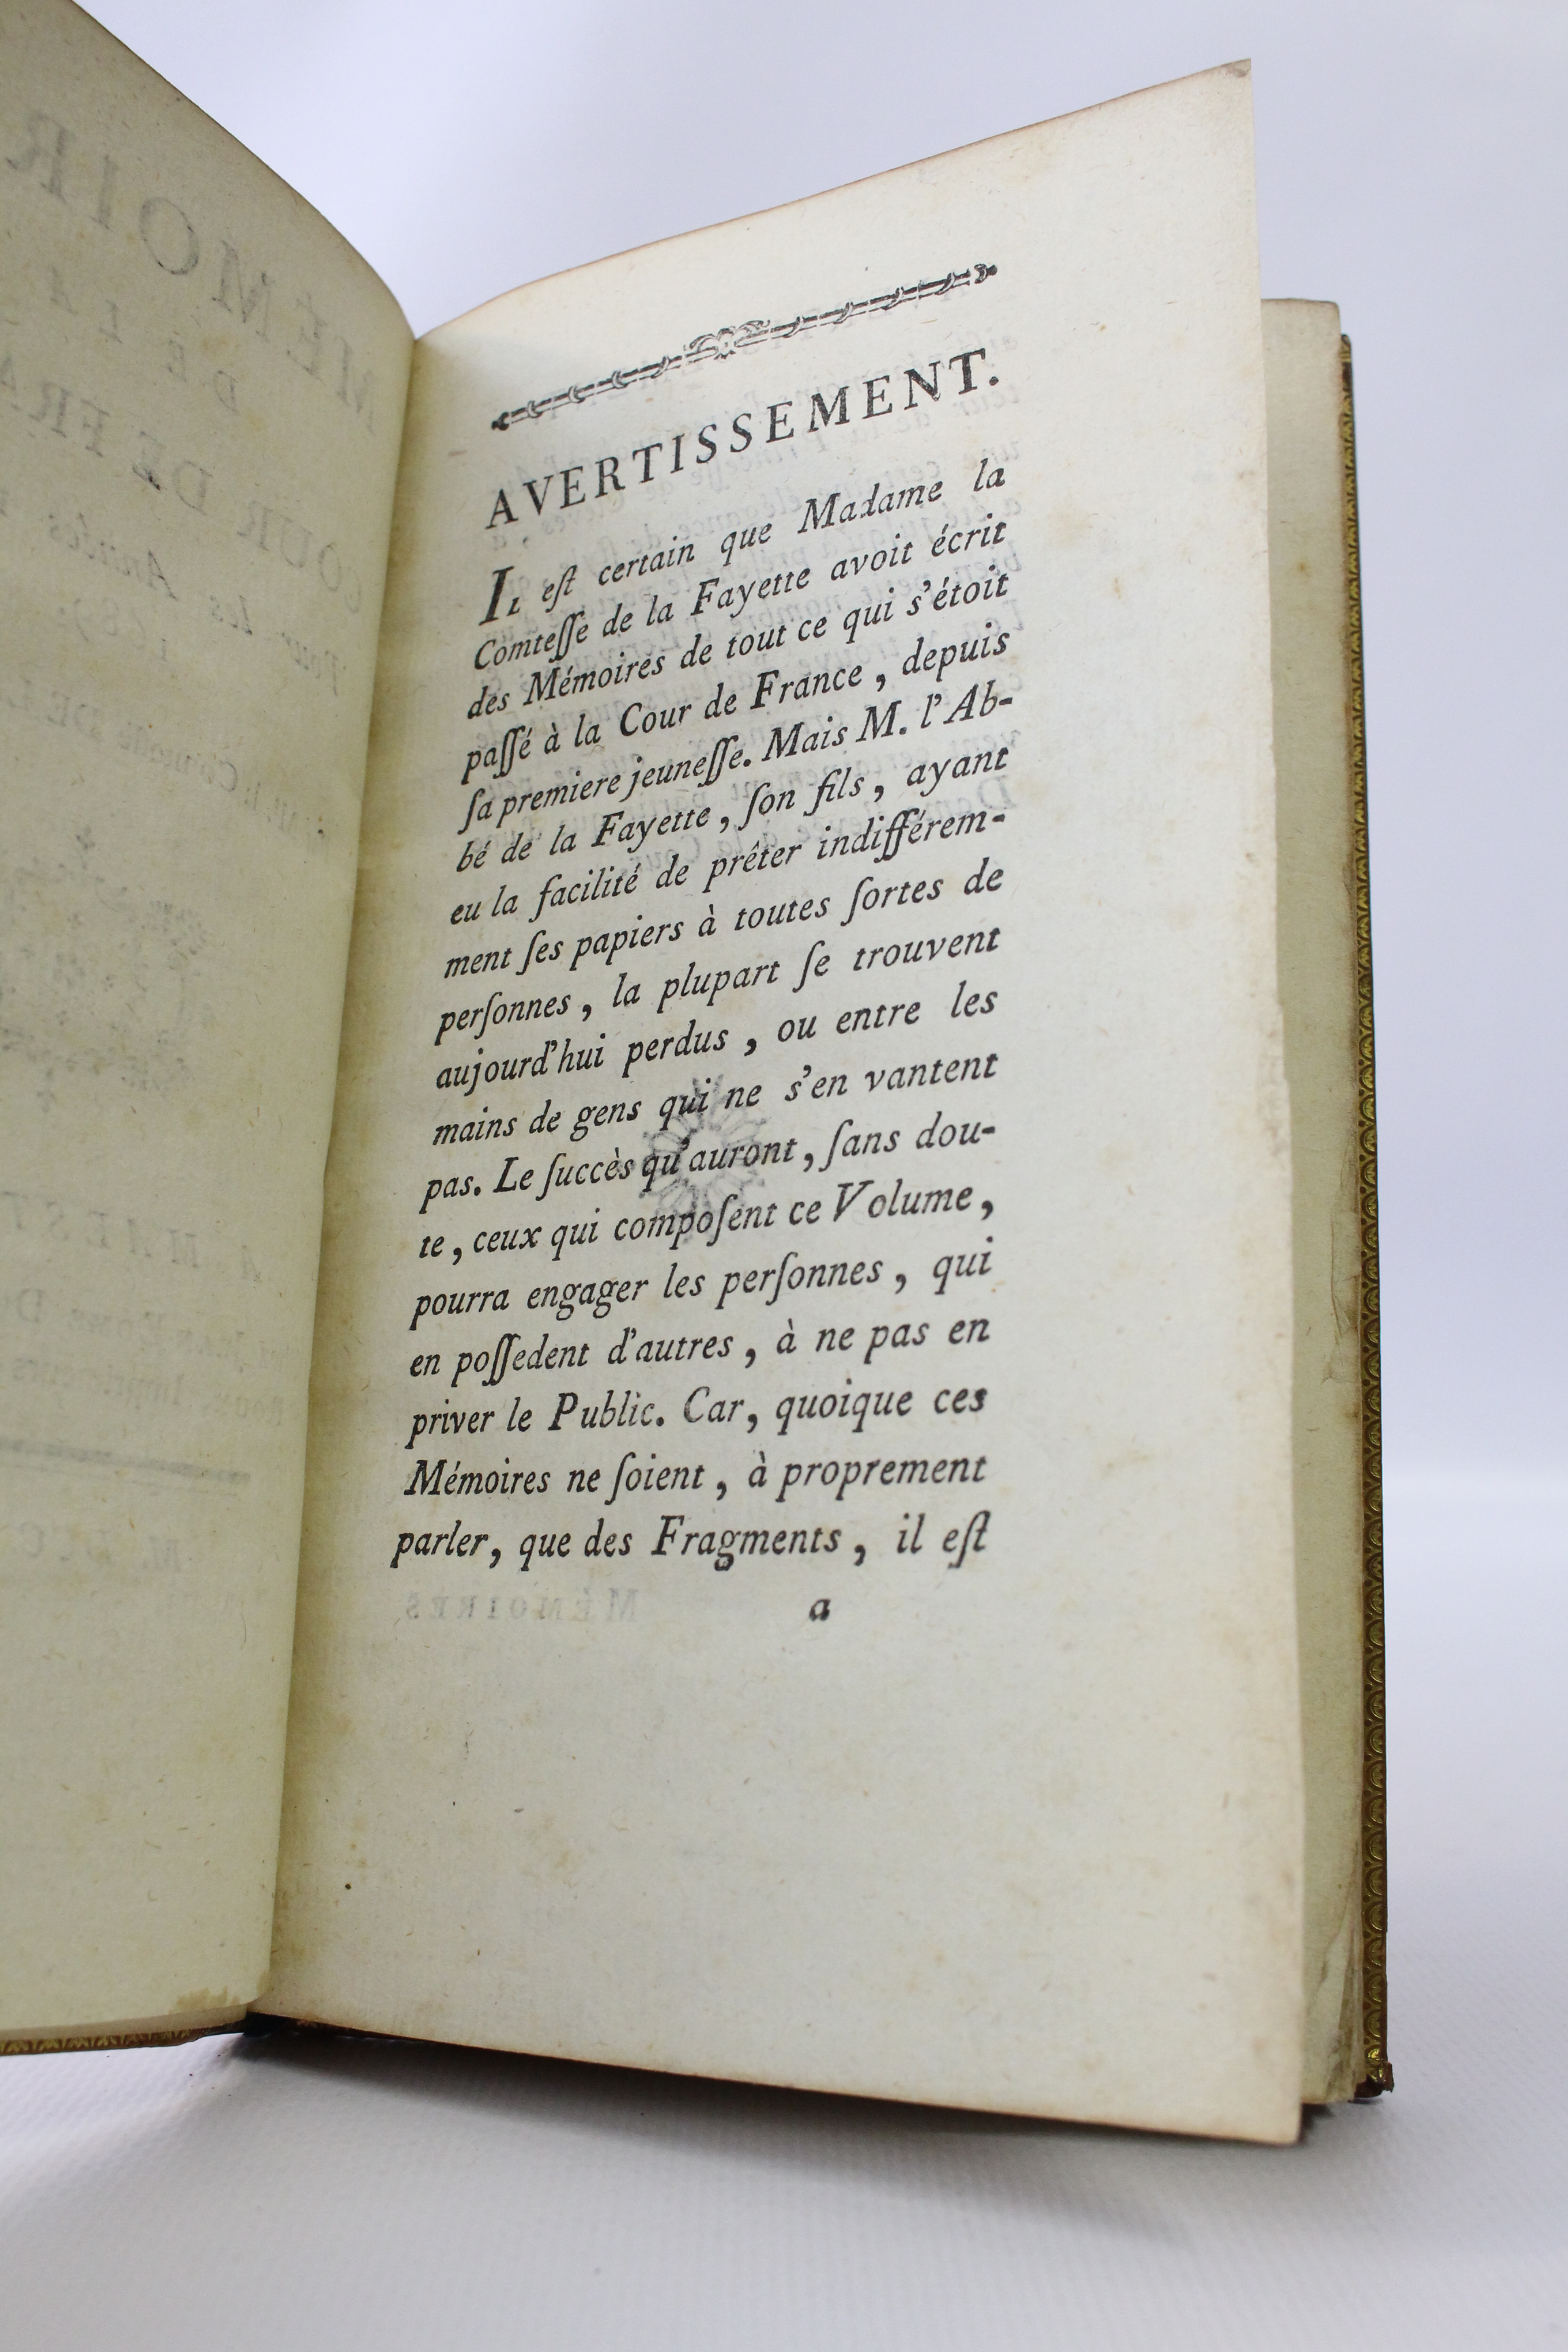 AVERTISSEMENT.
IL eſt certain que Madame la
Comteſſe de la Fayette avoit écrit
des Mémoires de tout ce qui s'étoit
paſſé à la Cour de France, depuis
ſa premiere jeuneſſe. Mais M. l'Ab-
bé de la Fayette, ſon fils, ayant
eu la facilité de prêter indifférem-
ment ſes papiers à toutes ſortes de
perſonnes, la plupart ſe trouvent
aujourd'hui perdus, ou entre les
mains de gens qui ne s'en vantent
pas. Le ſuccès qu'auront, ſans dou-
te, ceux qui compoſent ce Volume,
pourra engager les perſonnes, qui
en poſſedent d'autres, à ne pas en
priver le Public. Car, quoique ces
Mémoires ne ſoient, à proprement
parler, que des Fragments, il eſt
a